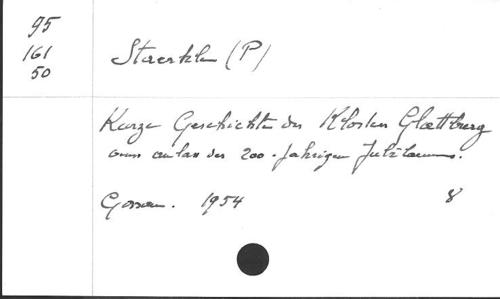 95
161
50
Staerkle (P)
Kurze Geschichte des Kloster Glattburg
aus anlass des 200-Jahrigen Jubilaeums.
Gossau. 1954 8